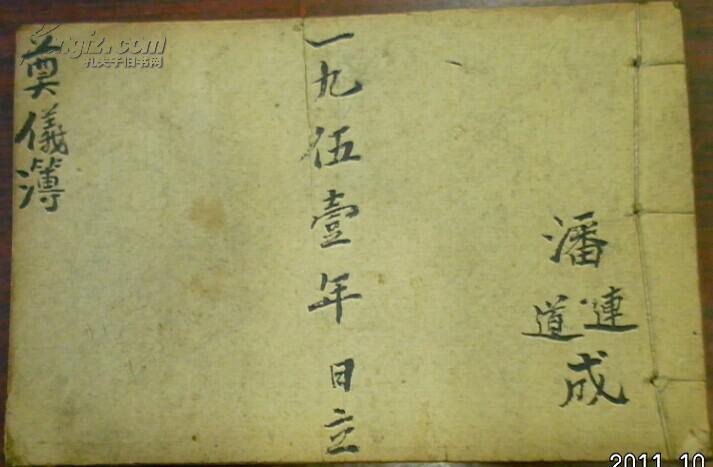 潘連道成
一九伍壹年 日立
奠儀簿
孔夫子旧书网
2011.10